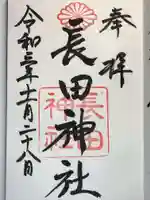 奉拝
長田神社
長田
神社
令和三年十一月二十八日